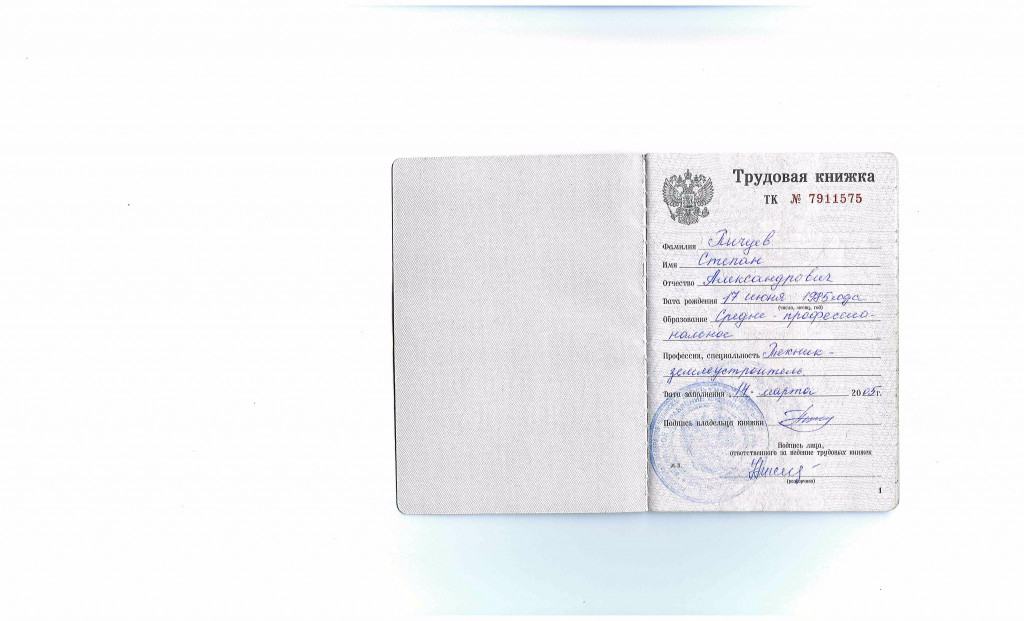 Трудовая книжка
ТК № 7911575
Фамилия Пичуев
Имя Степан
Отчество Александрович
Дата рождения 17 июня 1985 года
(число, месяц, год)
Образование Средне-профессио-
нальное
Профессия, специальность Техник-
землеустроитель
Дата заполнения 14 марта 2005 г.
Подпись владельца книжки
Подпись лица,
ответственного за ведение трудовых книжек
М.П.
(разборчиво)
1